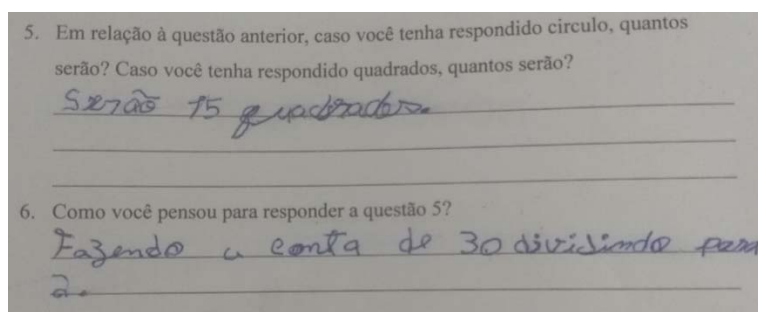 5. Em relação à questão anterior, caso você tenha respondido circulo, quantos
serão? Caso você tenha respondido quadrados, quantos serão?
Serão 15 quadrados.
6. Como você pensou para responder a questão 5?
Fazendo a conta de 30 dividindo para
2.